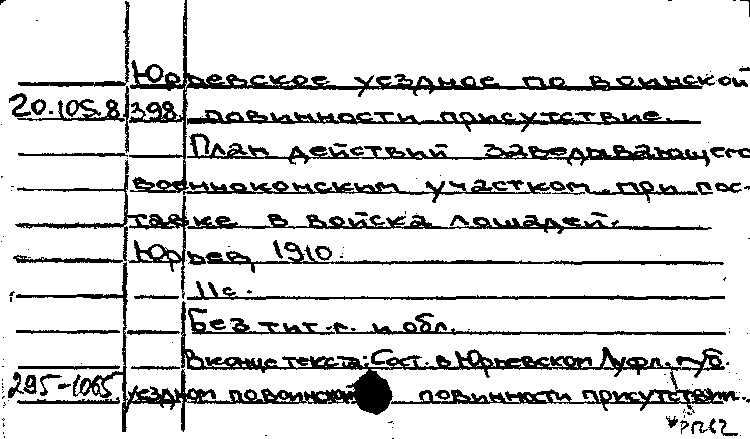 Юрьевское уездное по воинской
20.105.8.398. повинности присутствие.
План действий заведывающего
военноконским участком при пос-
тавке в войска лошадей.
Юрьев, 1910.
11с.
Без тит.л. и обл.
В конце текста: Сост. в Юрьевском Луфл. губ.
295-1065 уездном по воинской повинности присутствии.